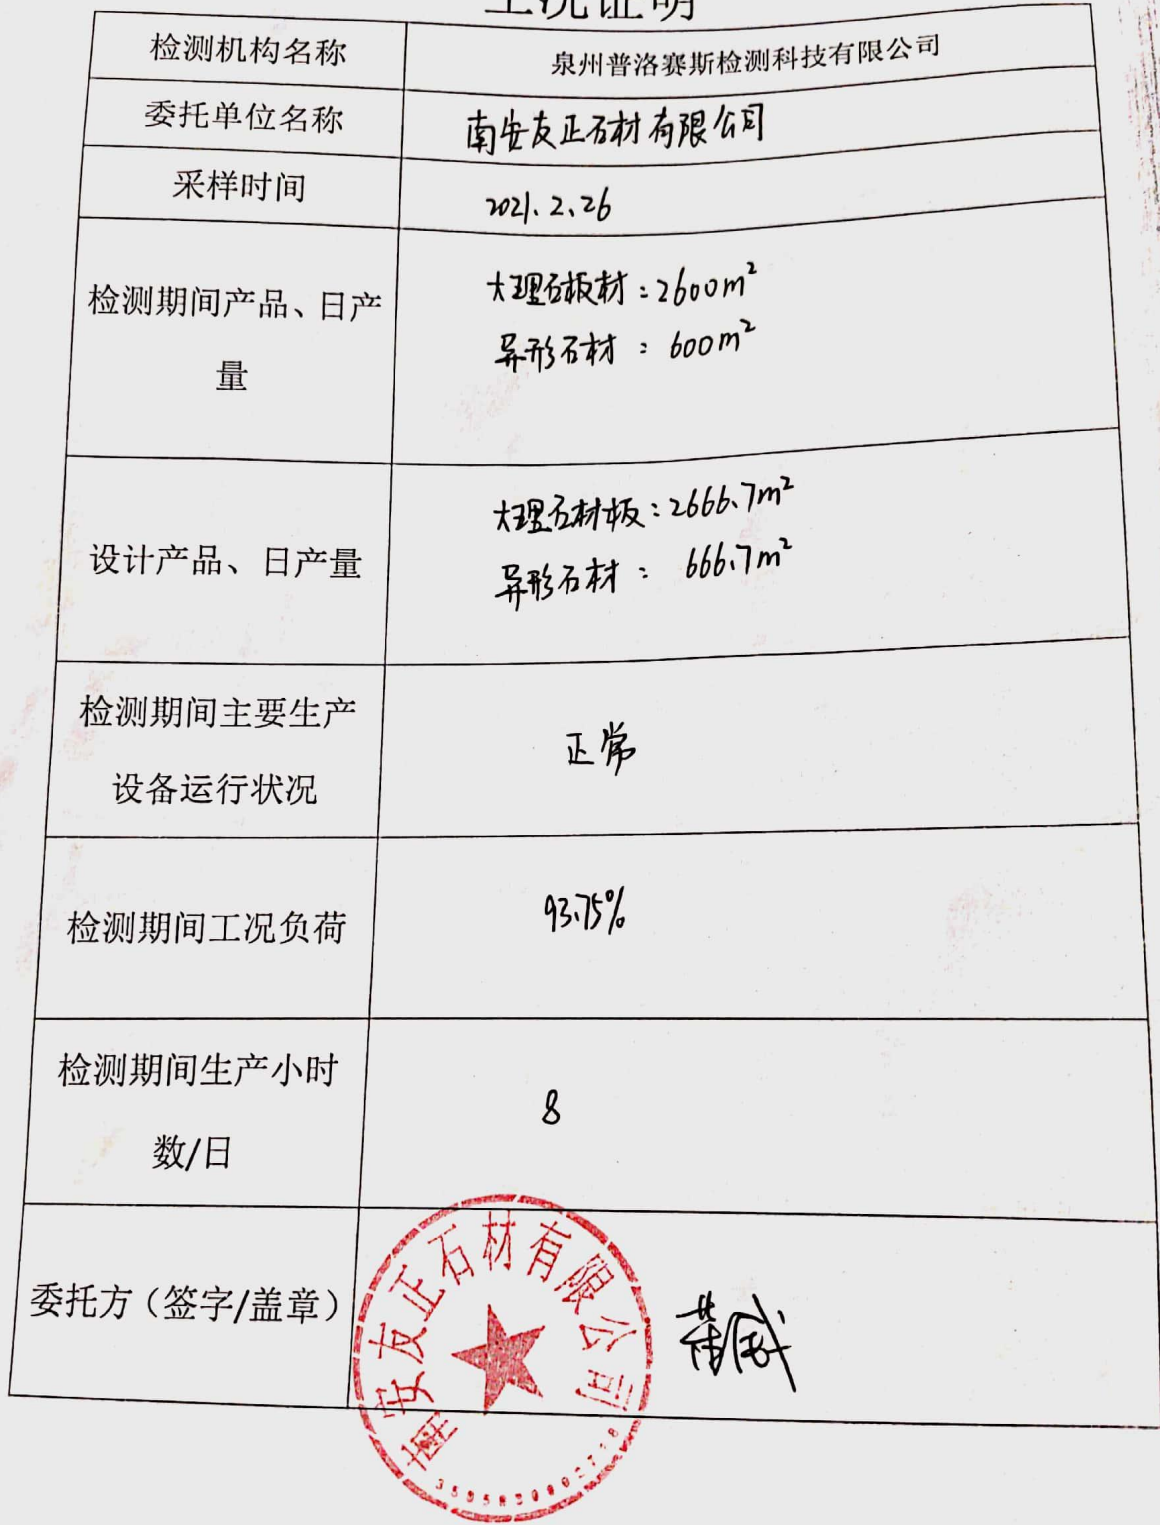 工况证明
检测机构名称
泉州普洛赛斯检测科技有限公司
委托单位名称
南安友正石材有限公司
采样时间
2021.2.26
检测期间产品、日产
量
大理石板材：2600m²
异形石材：600m²
设计产品、日产量
大理石材板：2666.7m²
异形石材：666.7m²
检测期间主要生产
设备运行状况
正常
检测期间工况负荷
93.75%
检测期间生产小时
数/日
8
委托方（签字/盖章）
南安友正石材有限公司